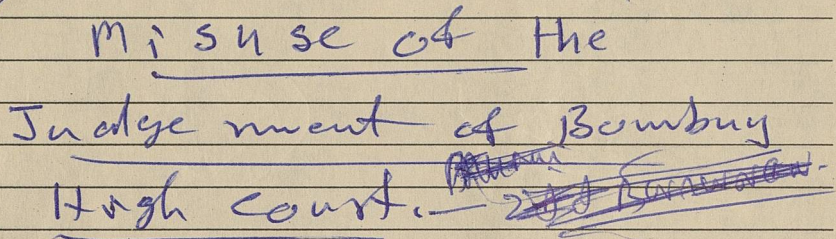 Misuse of the
Judgement of Bombay
High court. –